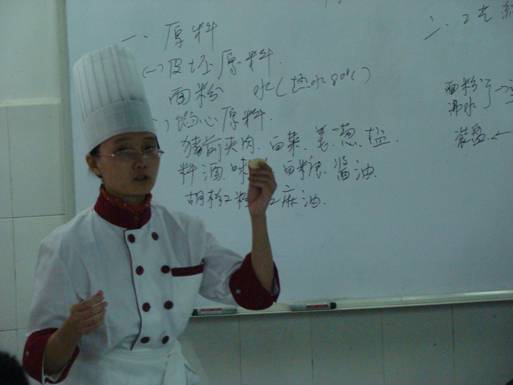 一、原料
(一)皮坯原料.
面粉 水(热水80℃)
馅心原料.
猪前夹肉.白菜.姜.葱.盐.
料酒.味 白糖.酱油.
胡椒粉 麻油.
二、工艺
面粉
沸水